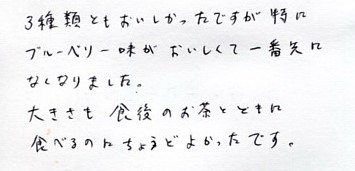 3種類ともおいしかったですが特に
ブルーベリー味がおいしくて一番先に
なくなりました。
大きさも食後のお茶とともに
食べるのにちょうどよかったです。